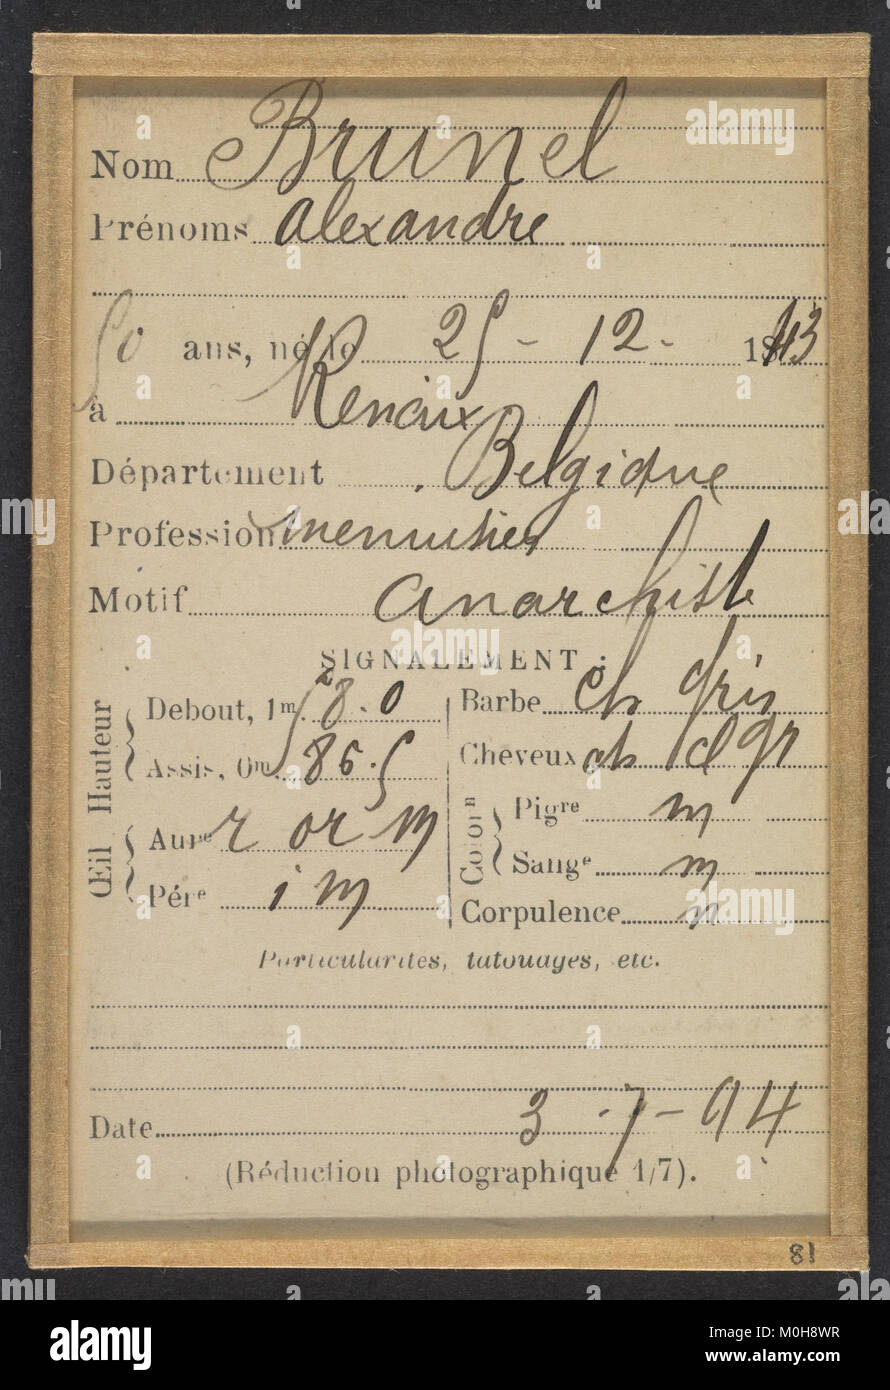 Nom Brunel
Prénoms alexandre
50 ans, né le 25 - 12 - 1843
à Renaix
Département Belgique
Profession menuisier
Motif anarchiste
SIGNALEMENT :
Hauteur
Debout, 1m 58.0
Assis, 0m 86.5
Œil
Aure r or m
Pére i m
Barbe ch gris
Cheveux ch
Colorn
Pigre m
Sange m
Corpulence
Particularités, tatouages, etc.
Date 3 - 7 - 94
(Réduction photographique 1/7).
81
alamy
Image ID: M0H8WR
www.alamy.com